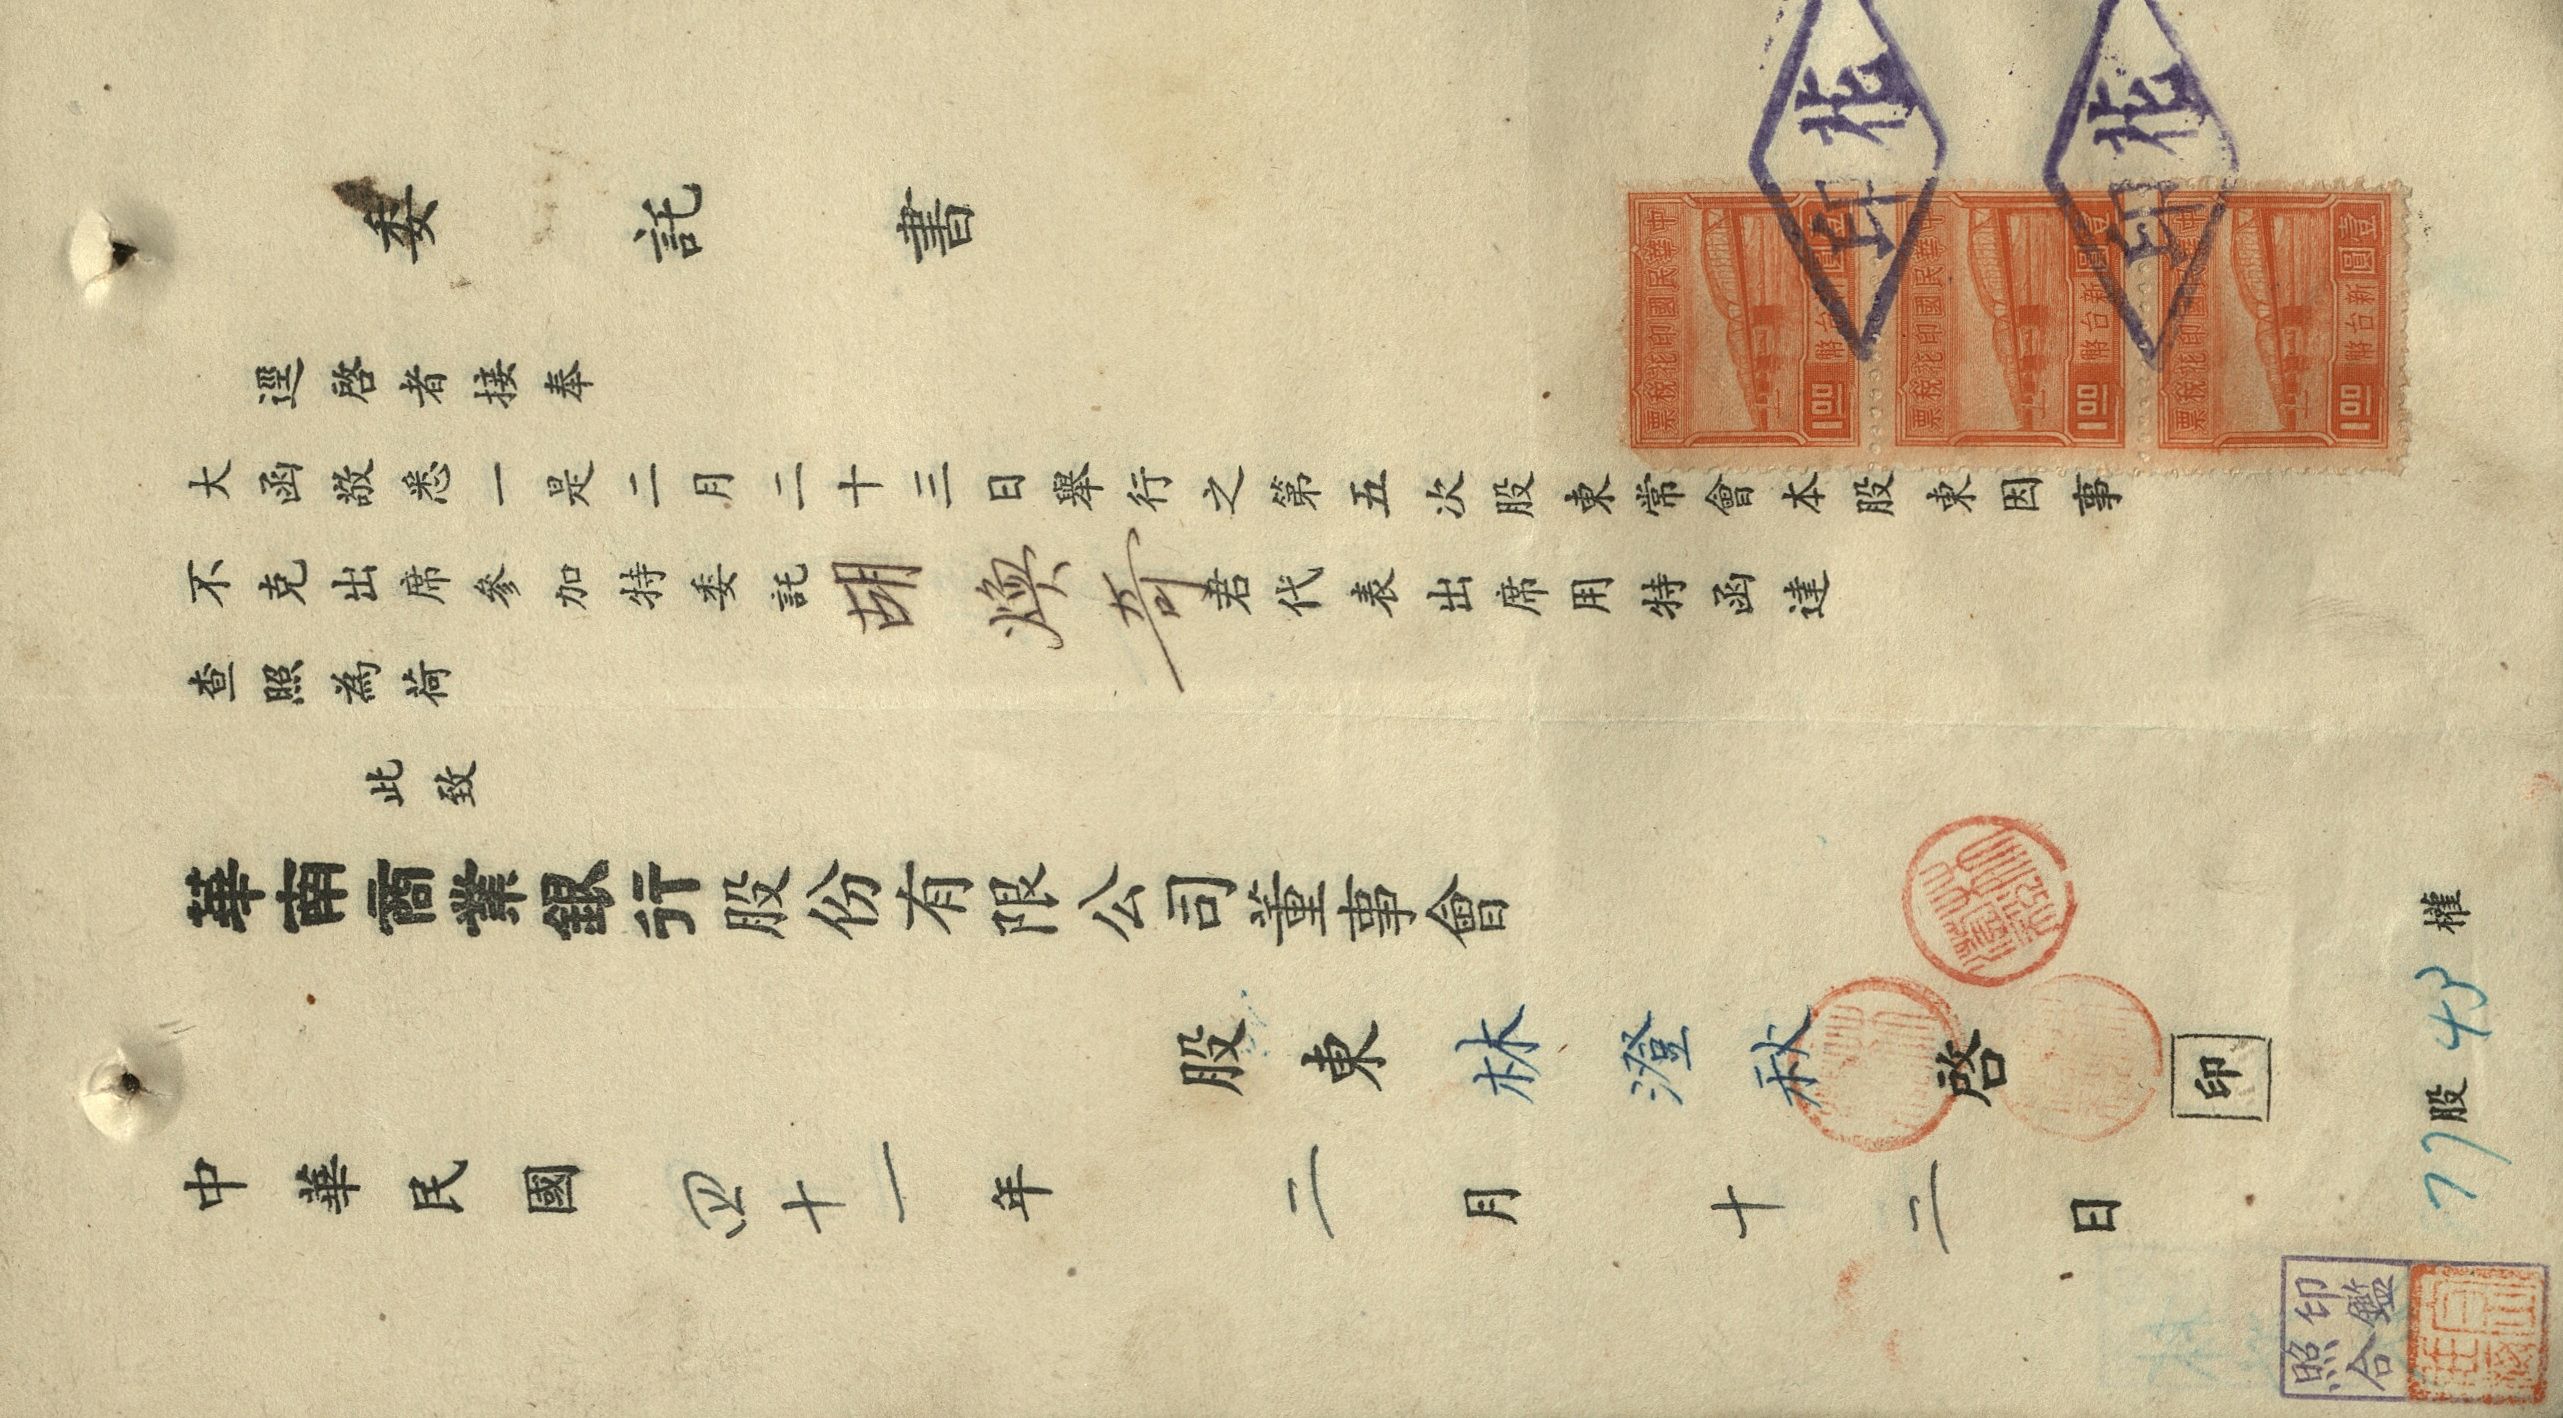 委託書
逕啓者接奉
大函敬悉一是二月二十三日舉行之第五次股東常會本股東因事
不克出席參加特委託胡煥奇君代表出席用特函達
查照為荷
此致
華南商業銀行股份有限公司董事會
股東林澄秋啓印
中華民國四十一年二月十二日
77股43權
印鑑
照合
印花
印花
中華民國印花稅票
壹圓
新台幣
1.00
中華民國印花稅票
壹圓
新台幣
1.00
中華民國印花稅票
壹圓
新台幣
1.00